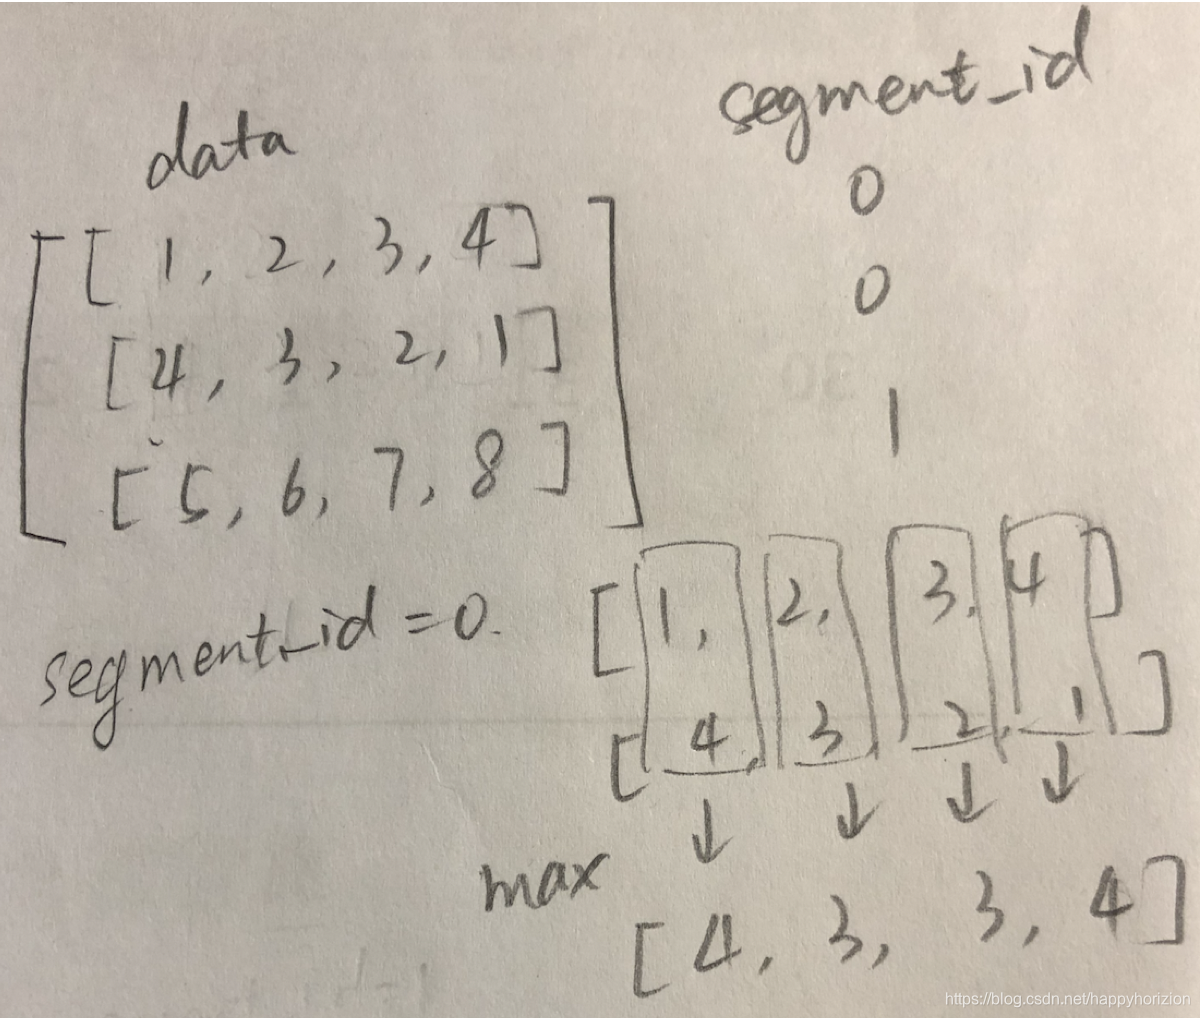 data
segment_id
[[1, 2, 3, 4]
[4, 3, 2, 1]
[5, 6, 7, 8]]
0
0
1
segment_id = 0.
[1, 2, 3, 4]
[4, 3, 2, 1]
↓ ↓ ↓ ↓
max
[4, 3, 3, 4]
https://blog.csdn.net/happyhorizion